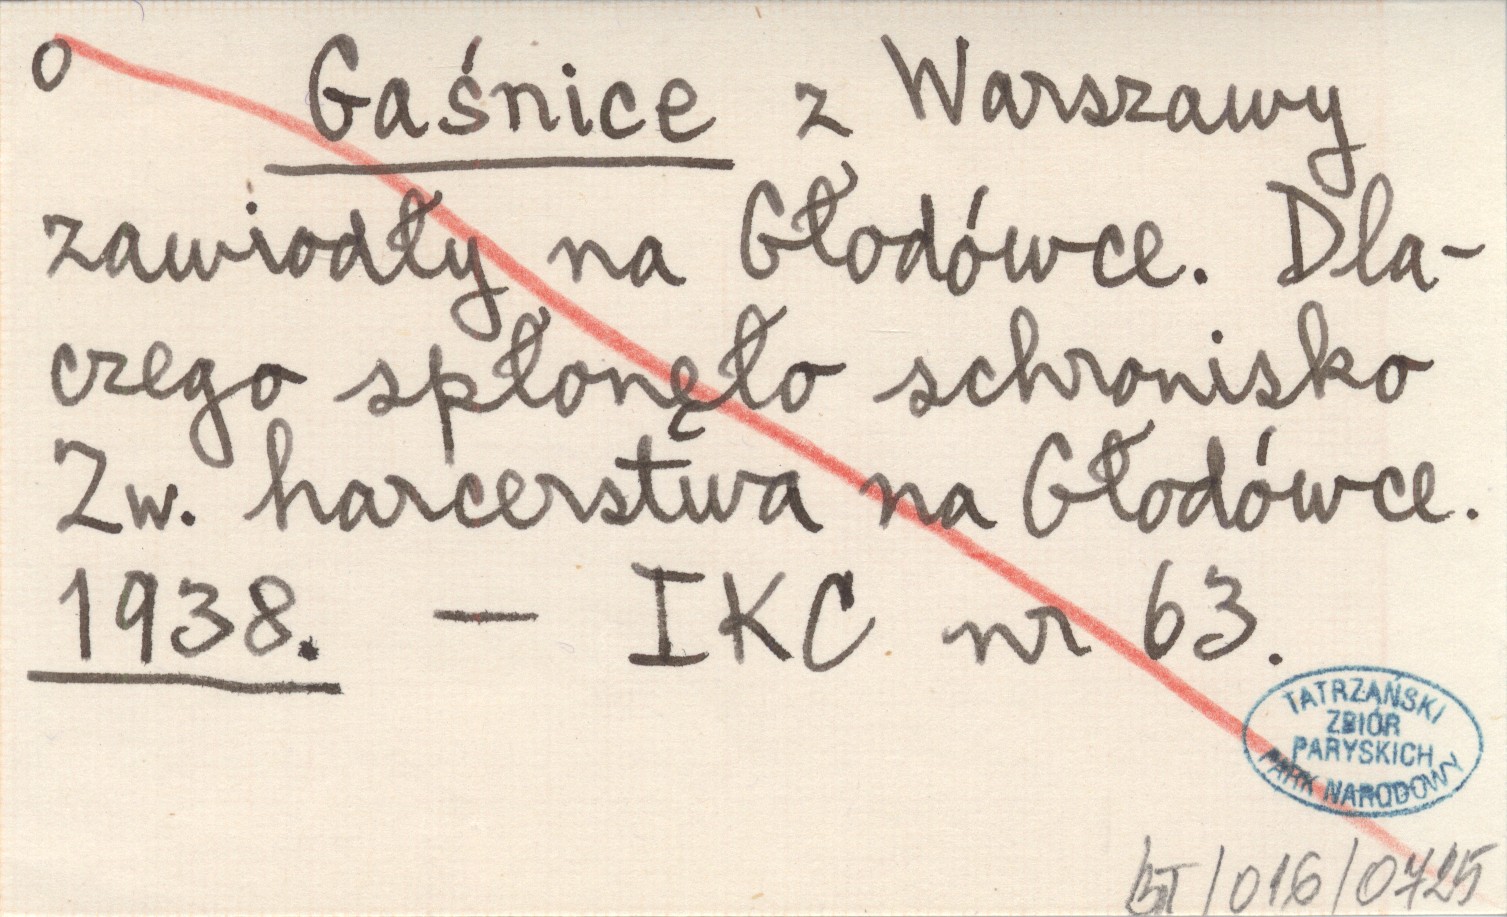 o Gaśnice z Warszawy
zawiodły na Głodówce. Dla-
czego spłonęło schronisko
Zw. harcerstwa na Głodówce.
1938. — IKC nr 63.
TATRZAŃSKI
ZBIÓR
PARYSKICH
PARK NARODOWY
BT/016/0725